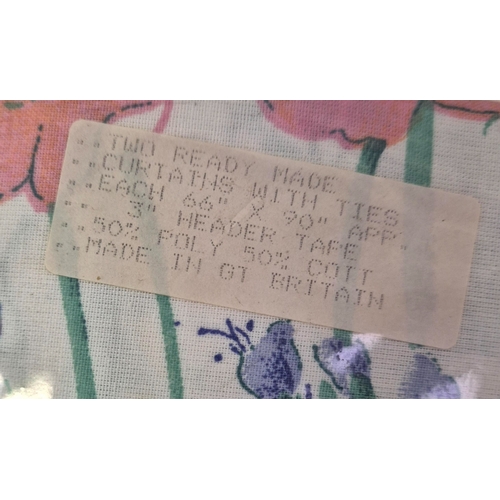 ""TWO READY MADE
""CURTAINS WITH TIES
""EACH 66" X 90" APP"
"" 3" HEADER TAPE
""50% POLY 50% COTT
""MADE IN GT BRITAIN